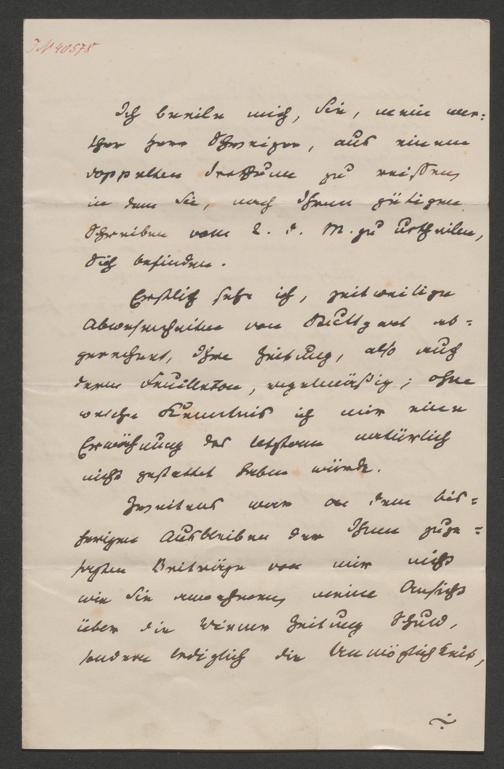 J N 40578
Ich beeile mich, Sie, mein wer=
ther Herr Schweizer, aus einem
doppelten Irrthume zu reissen,
in dem Sie, nach Ihrem gütigen
Schreiben vom 2. d. M. zu urtheilen,
sich befinden.
Erstlich sehe ich, zeitweilige
Abwesenheiten von Stuttgart ab=
gerechnet, Ihre Zeitung, also auch
deren Feuilleton, regelmäßig; ohne
welche Kenntnis ich mir eine
Erwähnung des letztern natürlich
nicht gestattet haben würde.
Zweitens war an dem bis=
herigen Ausbleiben der Ihnen zuge=
sagten Beiträge von mir nicht
wie Sie annehmen, meine Ansicht
über die Wiener Zeitung Schuld,
sondern lediglich die Unmöglichkeit,